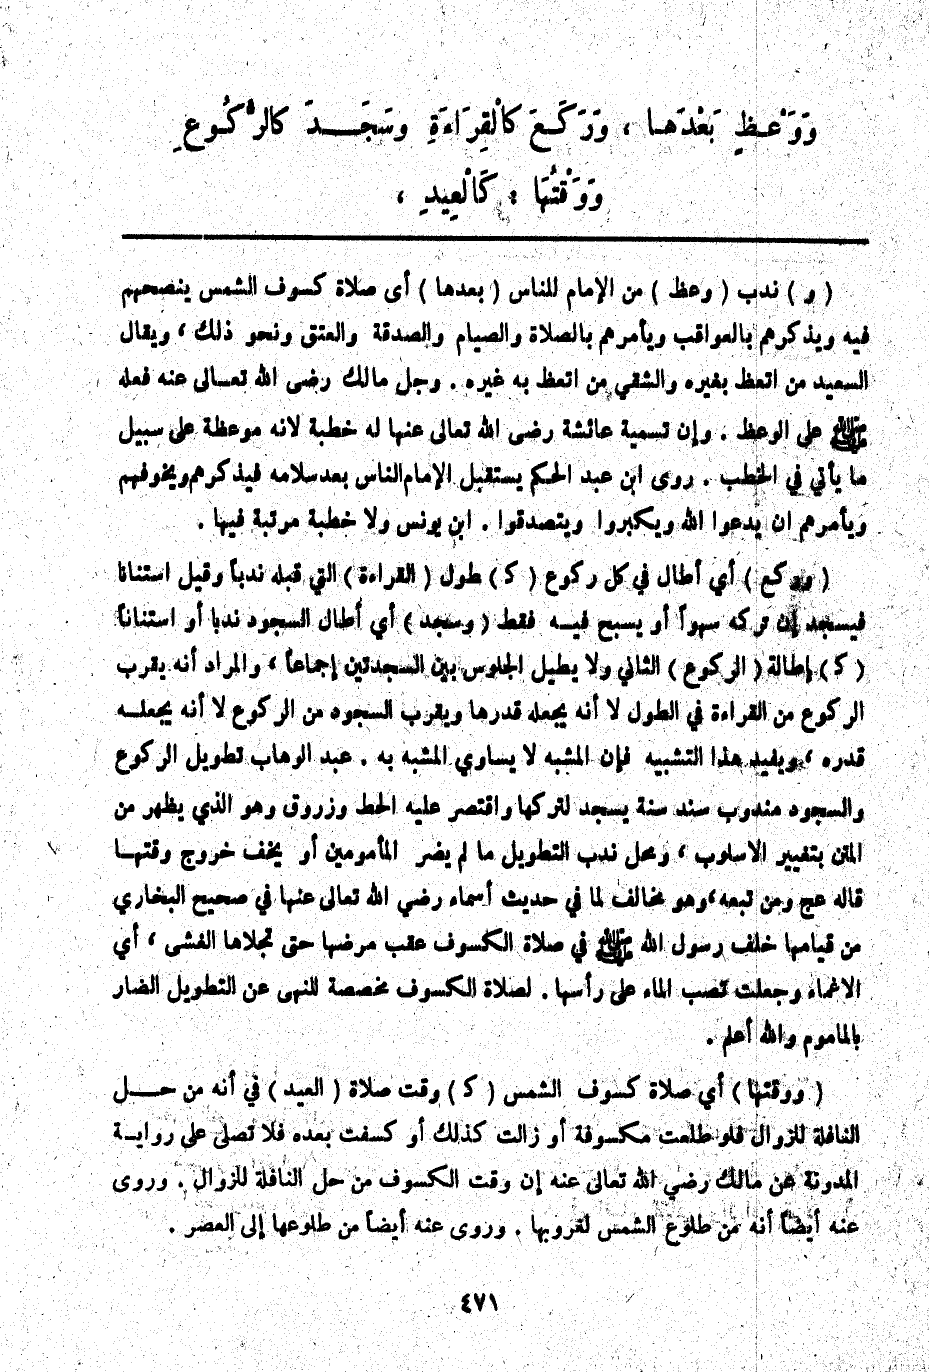 وَوَعْظٍ بَعْدَهَا ، وَرَكَعَ كَالْقِرَاءَةِ وسَجَدَ كالرُّكُوعِ
وَوَقْتُهَا : كَالْعِيدِ ،
( و ) ندب ( وعظ ) من الإمام للناس ( بعدها ) أى صلاة كسوف الشمس ينصحهم
فيه ويذكرهم بالعواقب ويأمرهم بالصلاة والصيام والصدقة والعتق ونحو ذلك ، ويقال
السعيد من اتعظ بغيره والشقي من اتعظ به غيره . وجل مالك رضى الله تعالى عنه فعله
ﷺ على الوعظ . وإن تسمية عائشة رضى الله تعالى عنها له خطبة لانه موعظة على سبيل
ما يأتي في الخطب . روى ابن عبد الحكم يستقبل الإمام الناس بعد سلامه فيذكرهم ويخوفهم
ويأمرهم ان يدعوا الله ويكبروا ويتصدقوا . ابن يونس ولا خطبة مرتبة فيها .
( وركع ) أي أطال في كل ركوع ( ك ) طول ( القراءة ) التي قبله ندباً وقيل استنانا
فيسجد إن تركه سهواً أو يسبح فيه فقط ( وسجد ) أي أطال السجود ندبا أو استناناً
( ك ) إطالة ( الركوع ) الثاني ولا يطيل الجلوس بين السجدتين إجماعاً ، والمراد أنه يقرب
الركوع من القراءة في الطول لا أنه يجعله قدرها ويقرب السجود من الركوع لا أنه يجعله
قدره ، ويفيد هذا التشبيه فإن المشبه لا يساوي المشبه به . عبد الوهاب تطويل الركوع
والسجود مندوب سند سنة يسجد لتركها واقتصر عليه الحط وزروق وهو الذي يظهر من
المتن بتغيير الاسلوب ، ومحل ندب التطويل ما لم يضر المأمومين أو يخف خروج وقتها
قاله عج ومن تبعه ، وهو مخالف لما في حديث أسماء رضي الله تعالى عنها في صحيح البخاري
من قيامها خلف رسول الله ﷺ في صلاة الكسوف عقب مرضها حتى تجلاها الغشى ، أي
الاغماء وجعلت تصب الماء على رأسها . لصلاة الكسوف مخصصة للنهى عن التطويل الضار
بالماموم والله أعلم .
( ووقتها ) أي صلاة كسوف الشمس ( ك ) وقت صلاة ( العيد ) في أنه من حل
النافلة للزوال فلو طلعت مكسوفة أو زالت كذلك أو كسفت بعده فلا تصلى على رواية
المدونة عن مالك رضي الله تعالى عنه إن وقت الكسوف من حل النافلة للزوال . وروى
عنه أيضاً أنه من طلوع الشمس لغروبها . وروى عنه أيضاً من طلوعها إلى العصر .
٤٧١